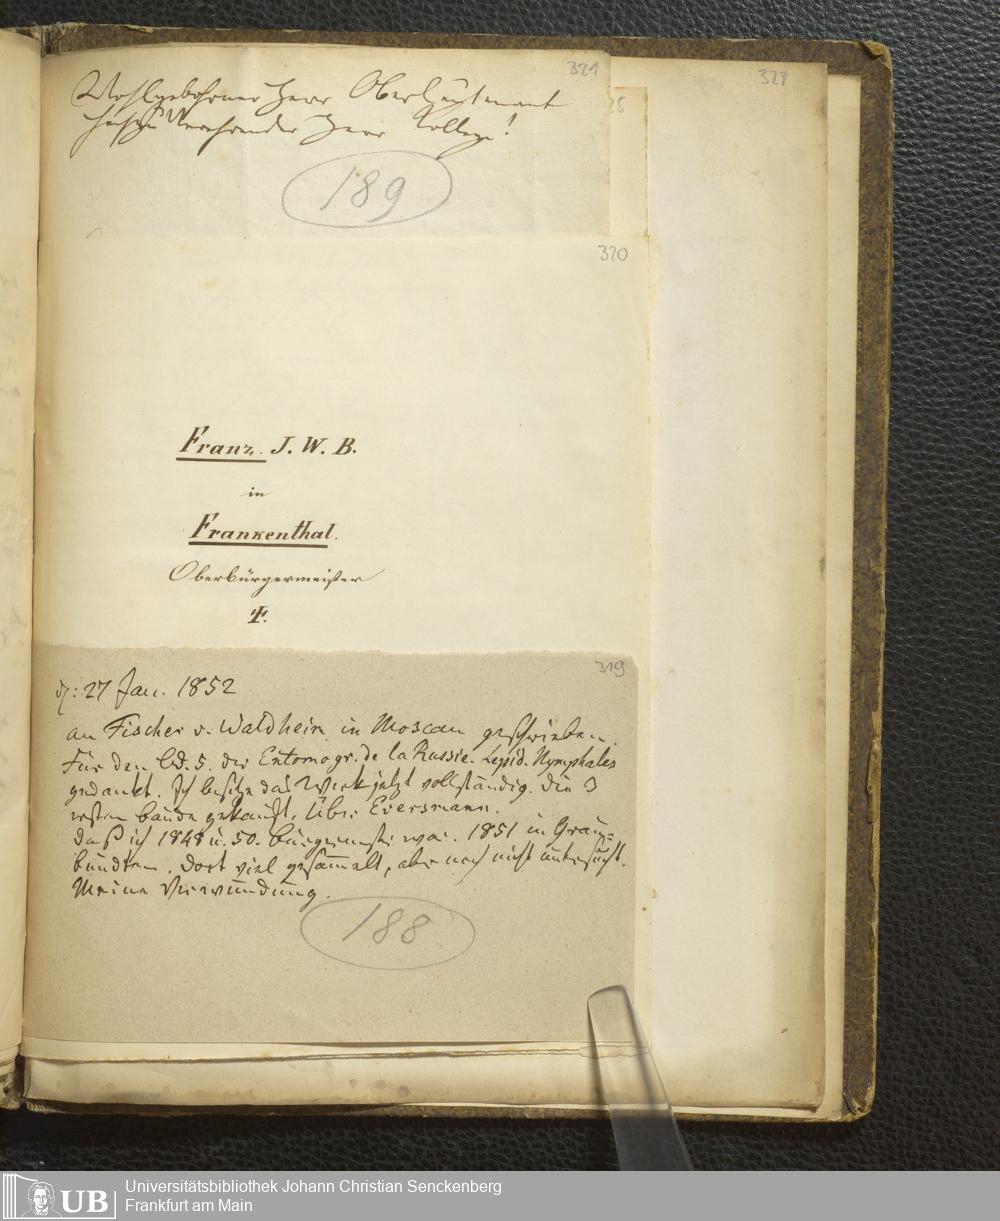 321
327
Wohlgebohrner Herr Oberleutnant
Verehrender Herr Kollege!
189
320
Franz. J. W. B.
in
Frankenthal.
Oberbürgermeister
319
27 Jan. 1852
an Fischer v. Waldheim in Moscau geschrieben.
Für den bd. 5. der Entomogr. de la Russie. Lepid. Nymphales
gedankt. Ich besitze das Werk jetzt vollständig. Die 3
ersten bände gekauft. Über Eversmann.
daß ich 1848 u. 50. bürgermstr. war. 1851 in Grau=
bündten. Dort viel gesammelt, aber noch nicht untersucht.
Meine Verwundung.
188
UB
Universitätsbibliothek Johann Christian Senckenberg
Frankfurt am Main